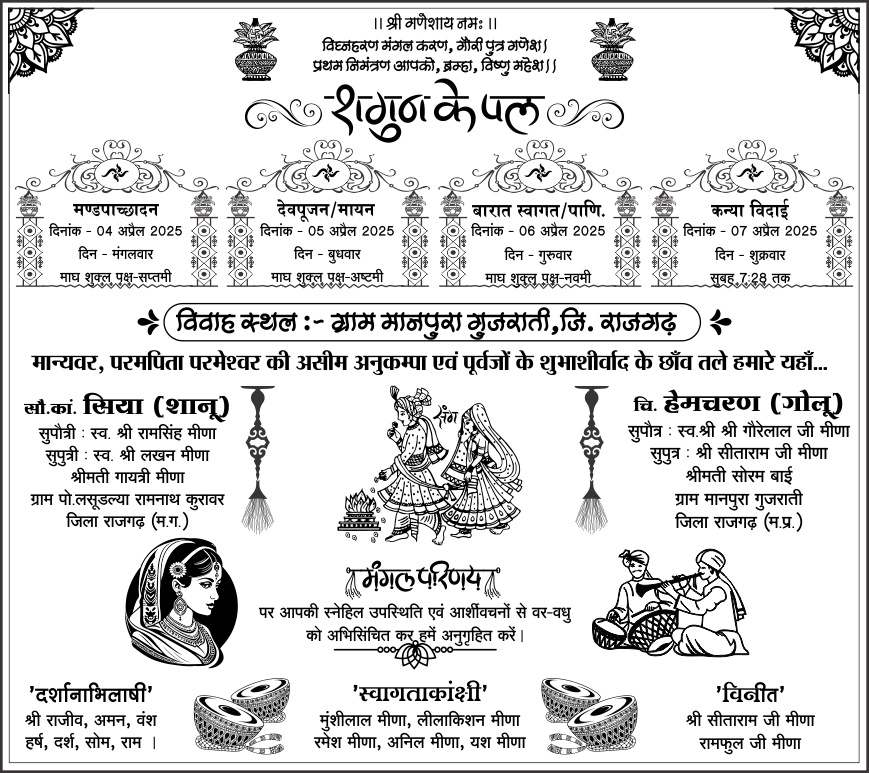 ।। श्री गणेशाय नमः ।।
विघ्नहरण मंगल करण, गौरी पुत्र गणेश।
प्रथम निमंत्रण आपको, ब्रम्हा, विष्णु महेश।।
शगुन के पल
मण्डपाच्छादन
दिनांक - 04 अप्रैल 2025
दिन - मंगलवार
माघ शुक्ल पक्ष-सप्तमी
देवपूजन/मायन
दिनांक - 05 अप्रैल 2025
दिन - बुधवार
माघ शुक्ल पक्ष-अष्टमी
बारात स्वागत/पाणि.
दिनांक - 06 अप्रैल 2025
दिन - गुरुवार
माघ शुक्ल पक्ष-नवमी
कन्या विदाई
दिनांक - 07 अप्रैल 2025
दिन - शुक्रवार
सुबह 7:28 तक
विवाह स्थल :- ग्राम मानपुरा गुजराती,जि. राजगढ़
मान्यवर, परमपिता परमेश्वर की असीम अनुकम्पा एवं पूर्वजों के शुभाशीर्वाद के छाँव तले हमारे यहाँ...
सौ.कां. सिया (शानू)
सुपौत्री : स्व. श्री रामसिंह मीणा
सुपुत्री : स्व. श्री लखन मीणा
श्रीमती गायत्री मीणा
ग्राम पो.लसूडल्या रामनाथ कुरावर
जिला राजगढ़ (म.ग.)
संग
चि. हेमचरण (गोलू)
सुपौत्र : स्व.श्री श्री गौरेलाल जी मीणा
सुपुत्र : श्री सीताराम जी मीणा
श्रीमती सोरम बाई
ग्राम मानपुरा गुजराती
जिला राजगढ़ (म.प्र.)
मंगल परिणय
पर आपकी स्नेहिल उपस्थिति एवं आर्शीवचनों से वर-वधु
को अभिसिंचित कर हमें अनुगृहित करें।
'दर्शानाभिलाषी'
श्री राजीव, अमन, वंश
हर्ष, दर्श, सोम, राम ।
'स्वागताकांक्षी'
मुंशीलाल मीणा, लीलाकिशन मीणा
रमेश मीणा, अनिल मीणा, यश मीणा
'विनीत'
श्री सीताराम जी मीणा
रामफुल जी मीणा